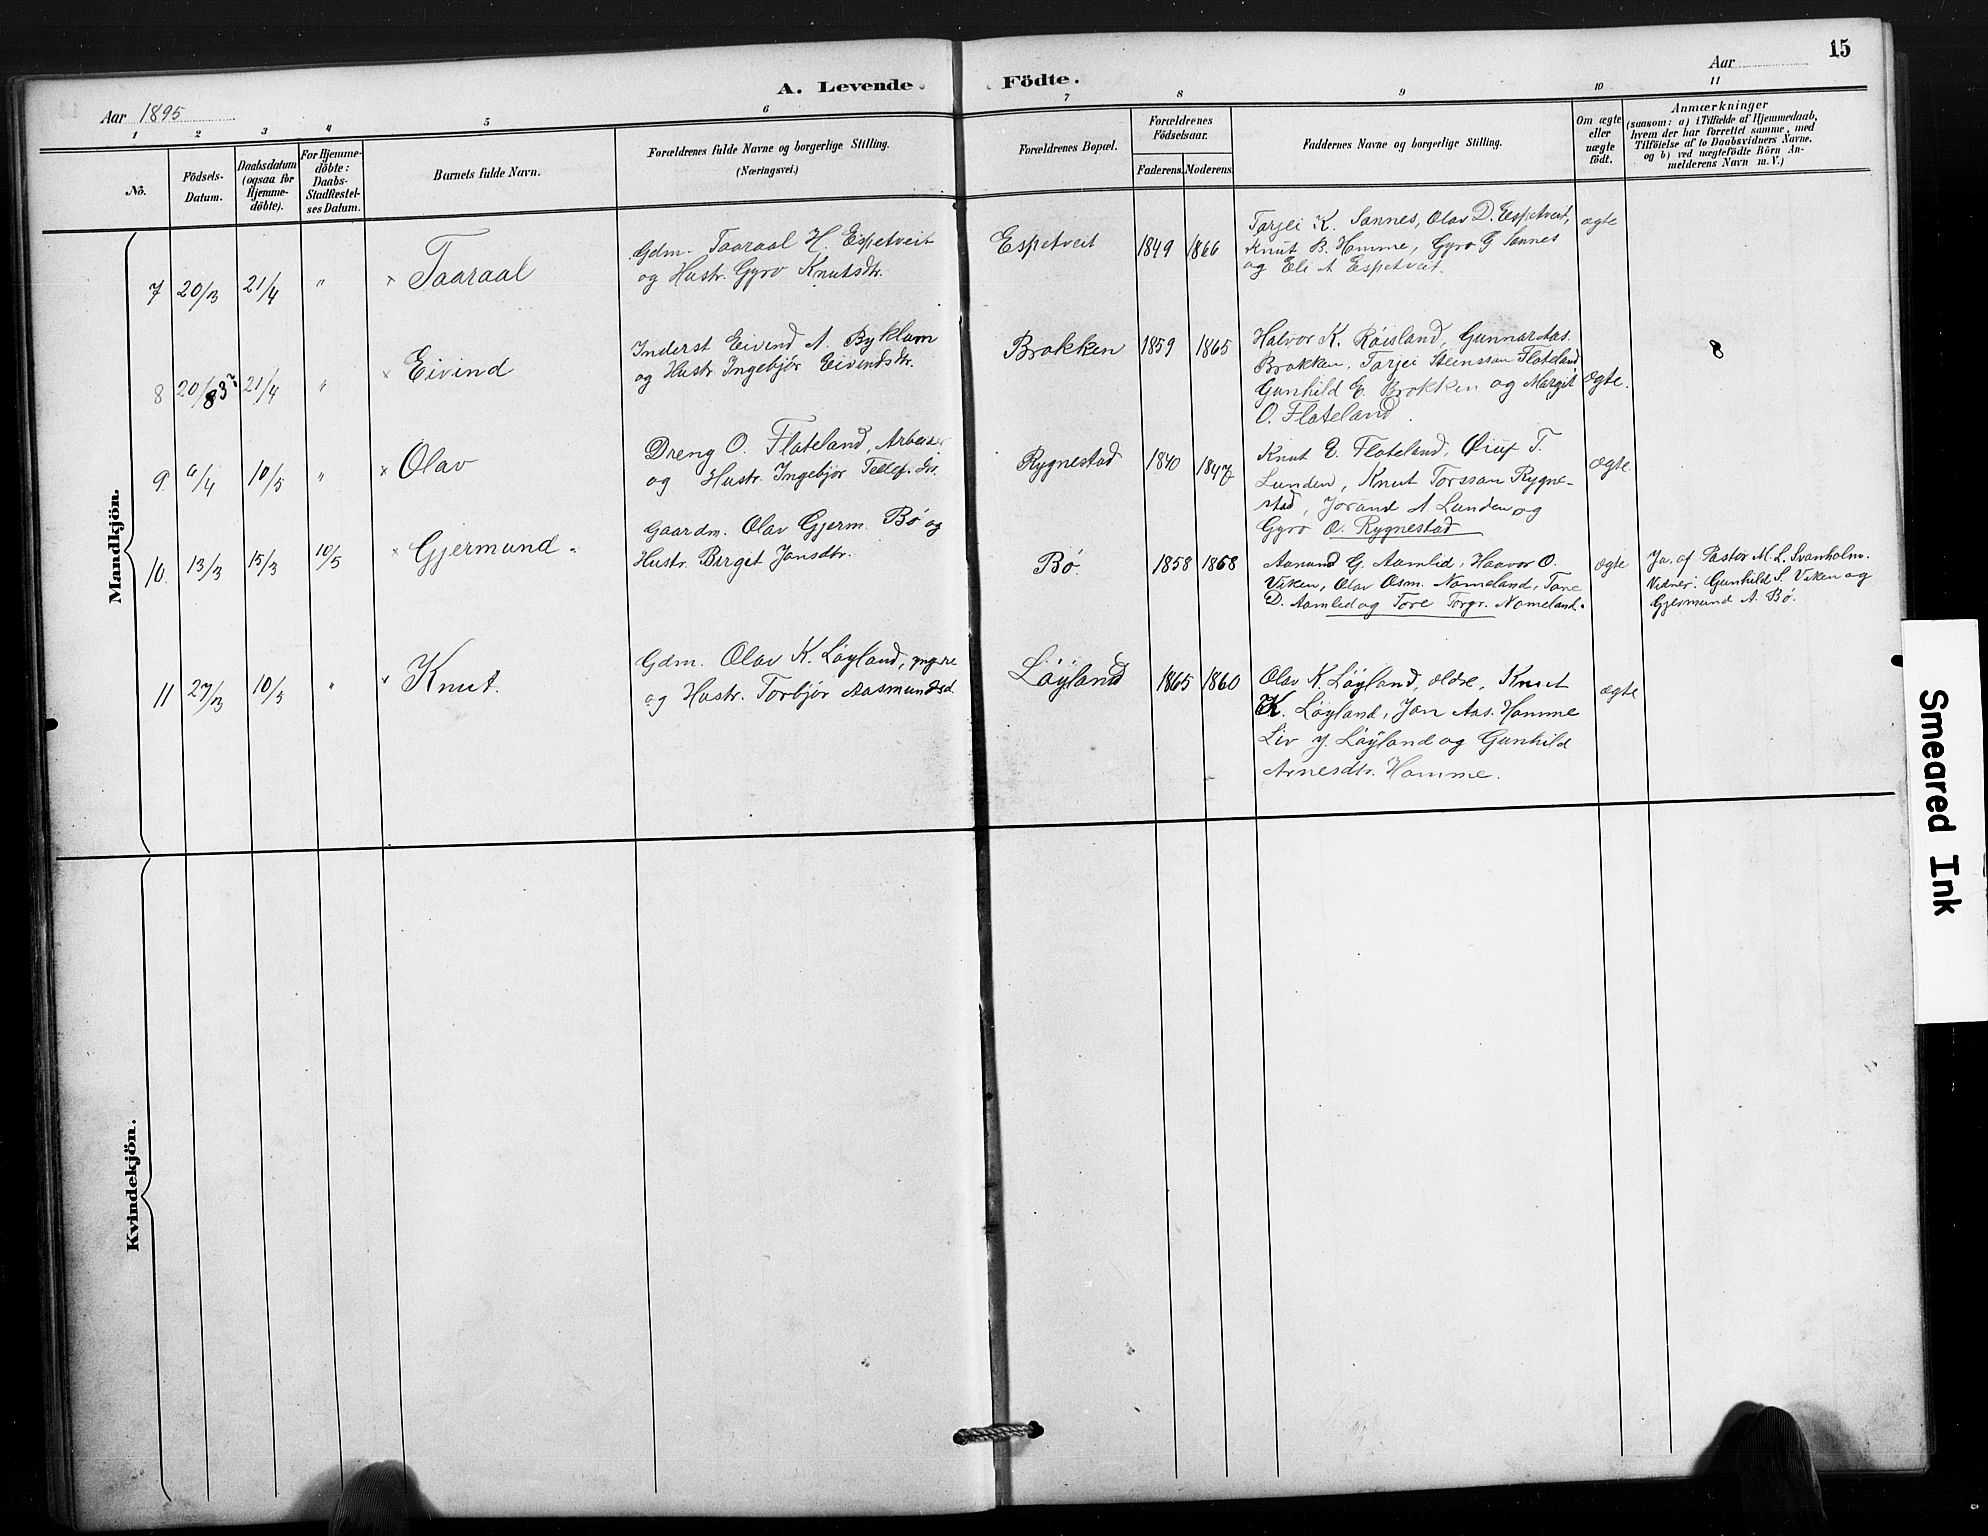 15
A. Levende Födte.
Aar 1895
Aar
1 2 3 4 5 6 7 8 9 10 11
Nö.
Födsels-Datum.
Daabsdatum (ogsaa for Hjemme-döbte).
For Hjemme-döbte: Daabs-Stadfæstel-ses Datum.
Barnets fulde Navn.
Forældrenes fulde Navne og borgerlige Stilling.
(Næringsvei.)
Forældrenes Bopæl.
Forældrenes Födselsaar.
Faderens. Moderens.
Faddernes Navne og borgerlige Stilling.
Om ægte eller uægte födt.
Anmærkninger
(saasom: a) i Tilfælde af Hjemmedaab,
hvem der har forrettet samme, med
Tilföielse af to Daabsvidners Navne,
og b) ved uægtefödte Börn An-
melderens Navn m. V.)
Mandkjön.
7 20/3 21/4 " × Taaraal
Gdm. Taaraal H. Espetveit
og Hustr. Gyro Knutsdtr.
Espetveit 1849 1866
Tarjei K. Sannes, Olav D. Espetveit,
Knut B. Homme, Gyro G Sannes
og Eli A Espetveit.
ægte
8 20/3 21/4 " × Eivind
Inderst Eivind A. Byklum
og Hustr. Ingebjør Eivindsdtr.
Brokken 1859 1865
Halvor K. Røisland, Gunnar Aas.
Brokken, Tarjei Steinsson Flateland,
Gunhild E. Brokken og Margit
O. Flateland.
ægte.
8
9 6/4 10/5 " × Olav
Dreng O. Flateland, Arbeider
og Hustr. Ingebjør Tellef.
Rygnestad 1840 1847
Knut E. Flateland, T.
Lunden, Knut Torsson Rygne-
stad, Jorand A Lunden og
Gyro O. Rygnestad
ægte.
10. 13/3 15/3 10/5 × Gjermund.
Gaardm. Olav Gjerm. Bø og
Hustr. Birget Jonsdtr.
Bø. 1858 1868
Aanund G. Aamlid, Haavor O.
Viken, Olav Osm. Nomeland, Tone
D. Aamlid og Tore Torgr. Nomeland.
ægte
af Pastor M. L. Svanholm.
Vidner: Gunhild S. Viken og
Gjermund A. Bø.
11 27/3 10/5 " × Knut.
Gdm. Olav K. Løyland, yngre
og Hustr. Torbjør Aasmundsd.
Løyland 1865 1860
Olav K. Løyland, ældre, Knut
K. Løyland, Jon Aas. Homme
Liv J. Løyland og Gunhild
Arnesdtr. Homme.
ægte
Kvindekjön.
Smeared Ink